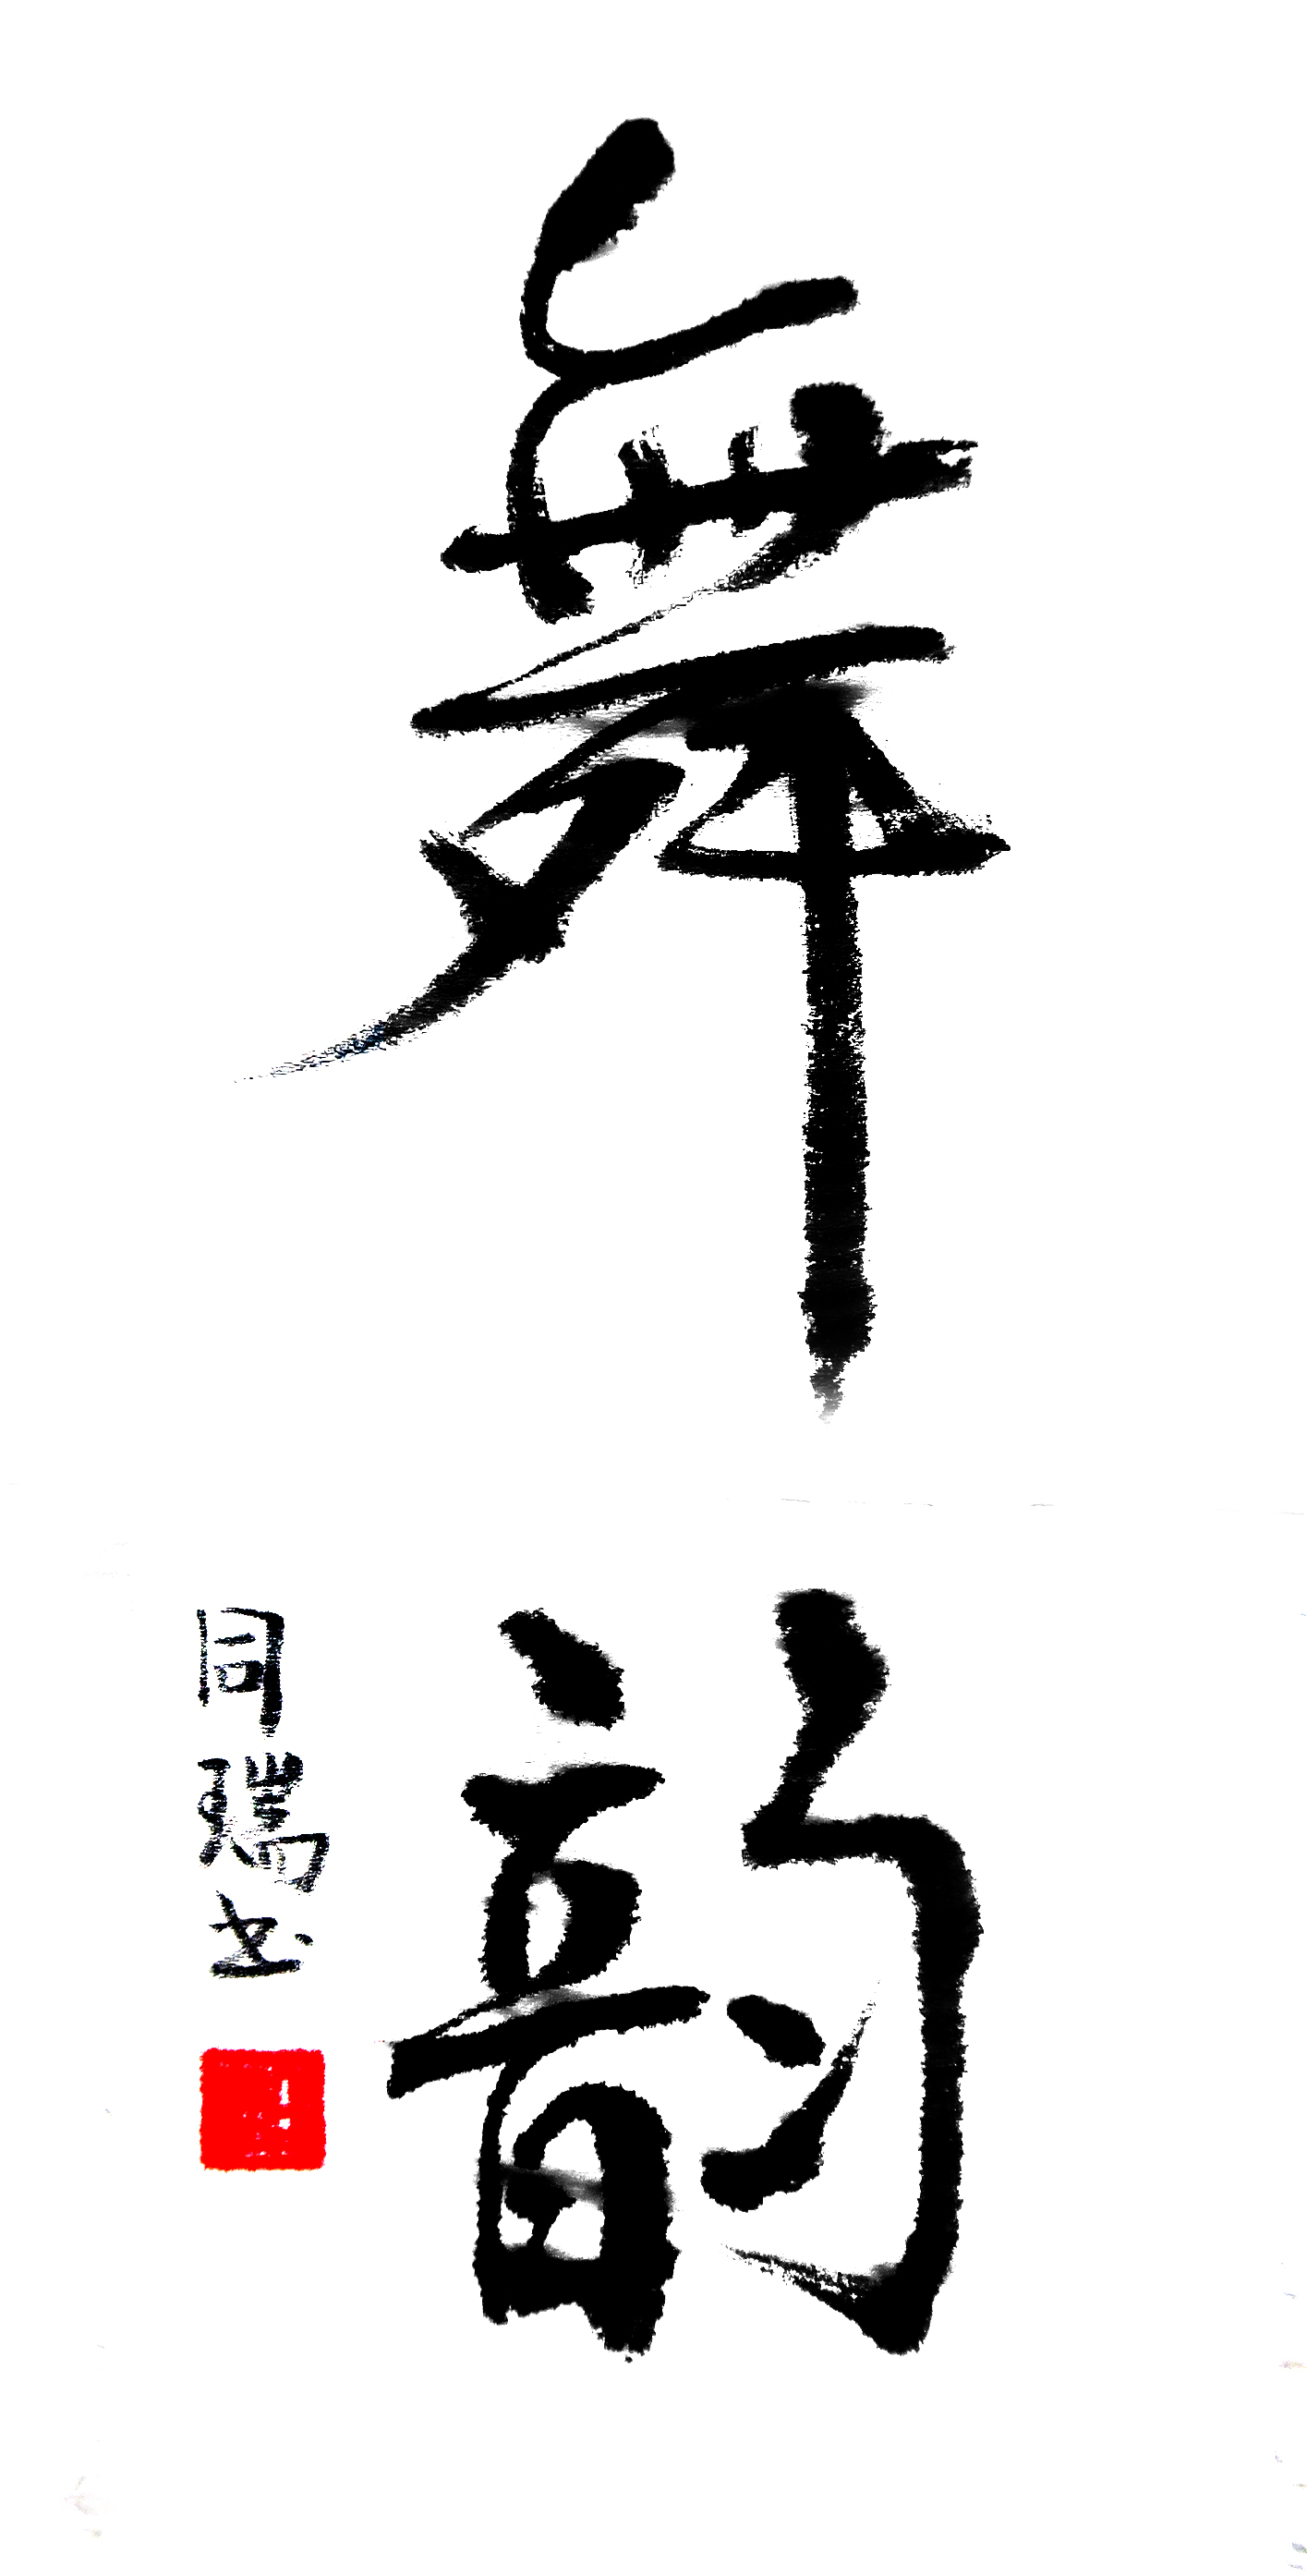 舞韵
同瑞书